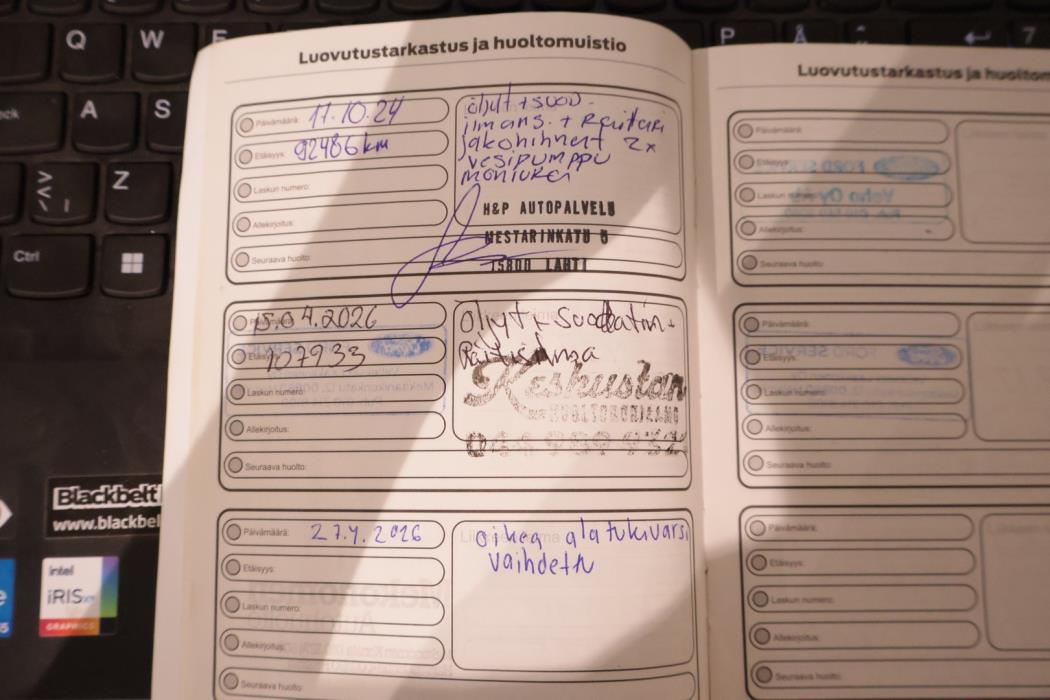 Q W E P Å
A S
Z
Ctrl
Blackbelt
www.blackbel
intel
iRIS xe
GRAPHICS
Luovutustarkastus ja huoltomuistio
Päivämäärä: 11.10.24
Etäisyys: 92486 km
Laskun numero:
Allekirjoitus:
Seuraava huolto:
öljyt + suod.
ilmans. + Raitari
jakohihnert 2x
vesipumppu
moniurei
H&P AUTOPALVELU
MESTARINKATU 5
15800 LAHTI
15.04.2026
Etäisyys: 107933
Laskun numero:
Allekirjoitus:
Seuraava huolto:
Öljyt + suodatin +
Keskustan
HUOLTOKORJAAMO
Päivämäärä: 27.4.2026
Etäisyys:
Laskun numero:
Allekirjoitus:
Seuraava huolto:
oikea alatukivarsi
vaihdettu
Luovutustarkastus ja huoltom
Päivämäärä:
Etäisyys:
Laskun
Allekirjoitus:
Seuraava huolto:
Päivämäärä:
Etäisyys:
Laskun numero:
Allekirjoitus:
Seuraava huolto:
Päivämäärä:
Etäisyys:
Laskun numero:
Allekirjoitus:
Seuraava huolto: